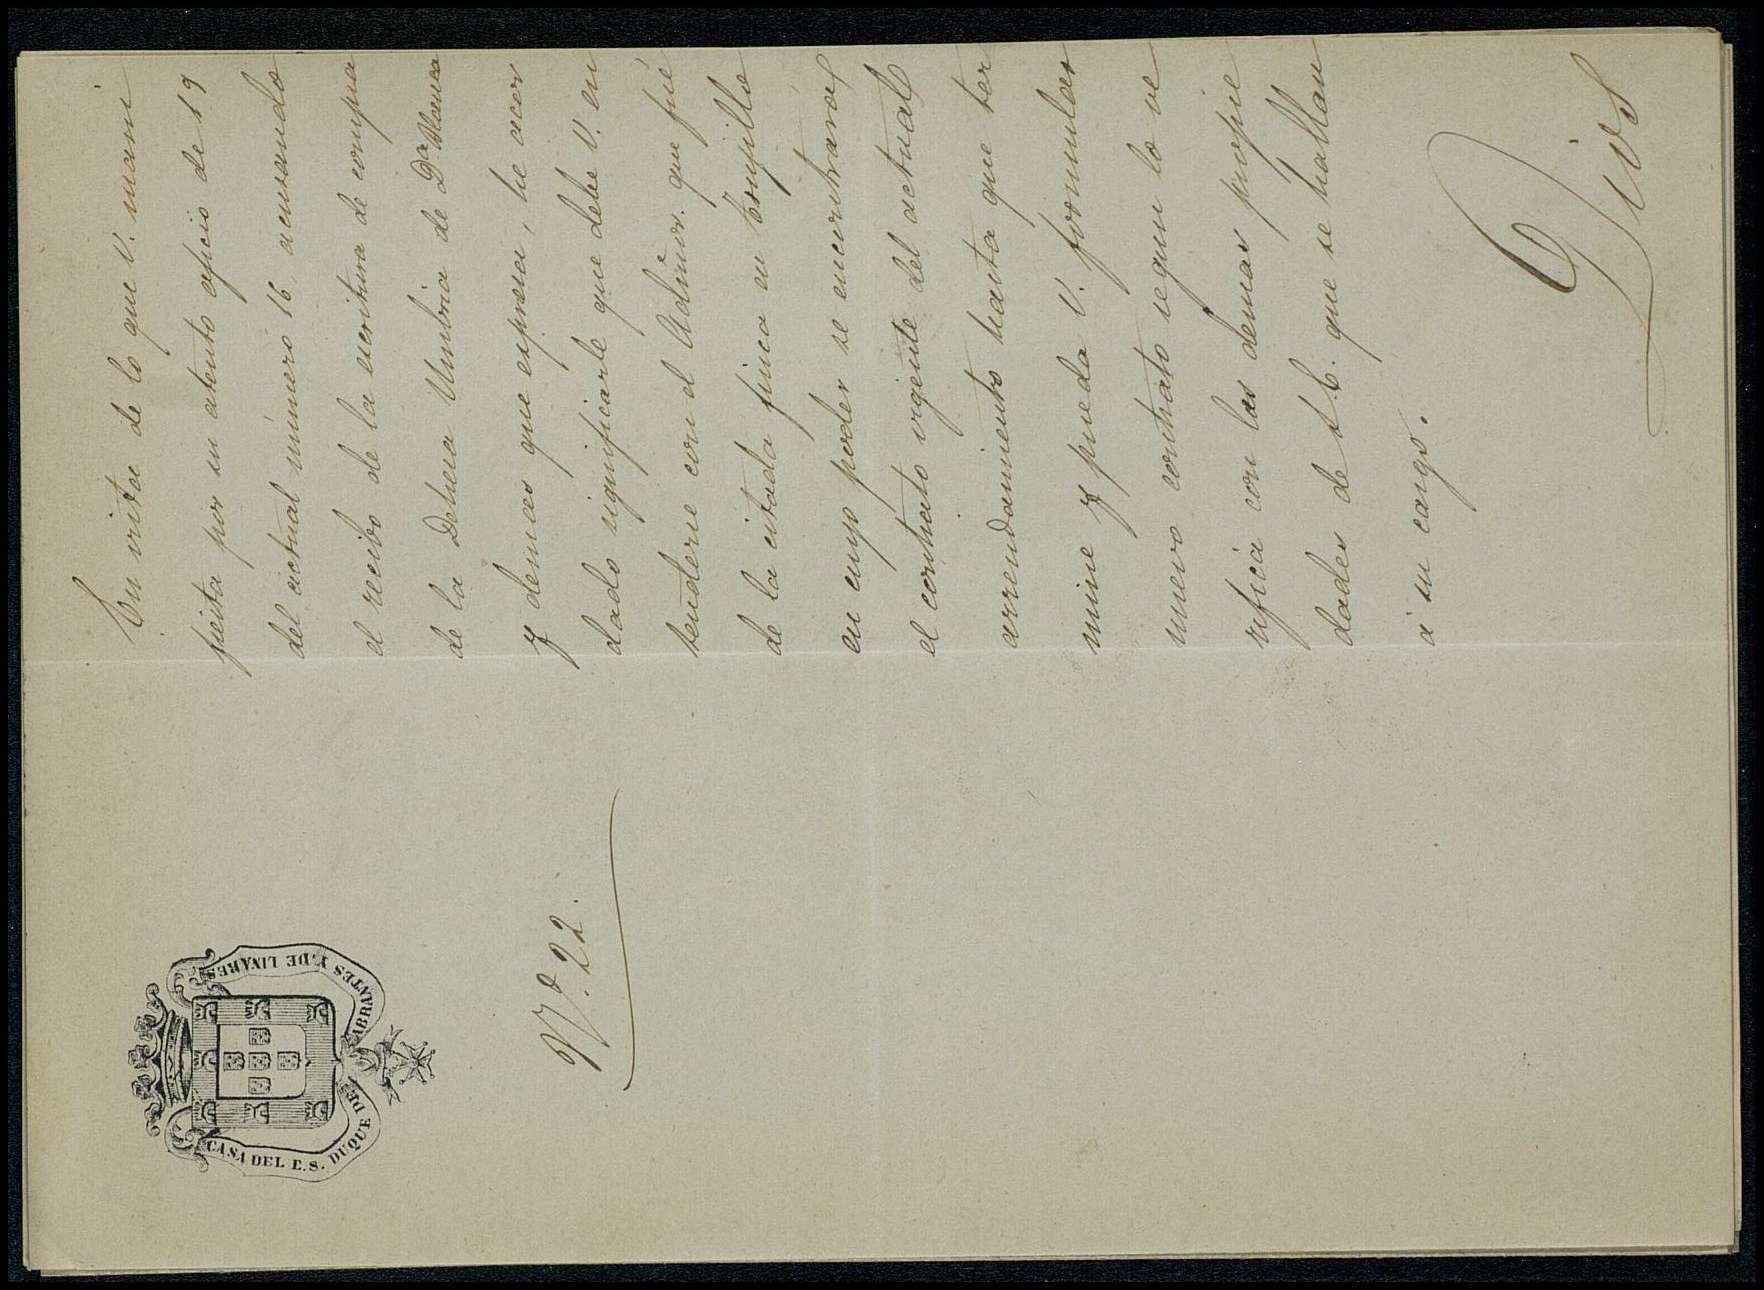 CASA DEL E.S. DUQUE DE ABRANTES Y DE LINARES
Nº. 22.
En vista de lo que V. mani
fiesta por su atento oficio de 19
del actual número 16 acusando
el recibo de la escritura de compra
de la Dehesa Umbria de Dª Blanca
y demas que expresa, he acor
dado significarle que debe V. en
tenderse con el Admor. que fué
de la citada finca en Trujillo
en cuyo poder se encontrará
el contrato vigente del actual
arrendamiento hasta que ter
mine y pueda V. formular
nuevo contrato segun lo ve
rifica con las demas propie
dades de S.E. que se hallan
á su cargo.
Dios